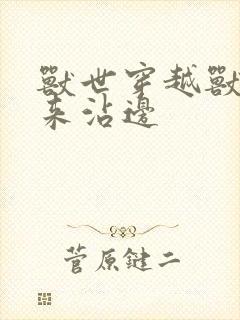 獸世穿越獸
来沾邊
菅原鍵二